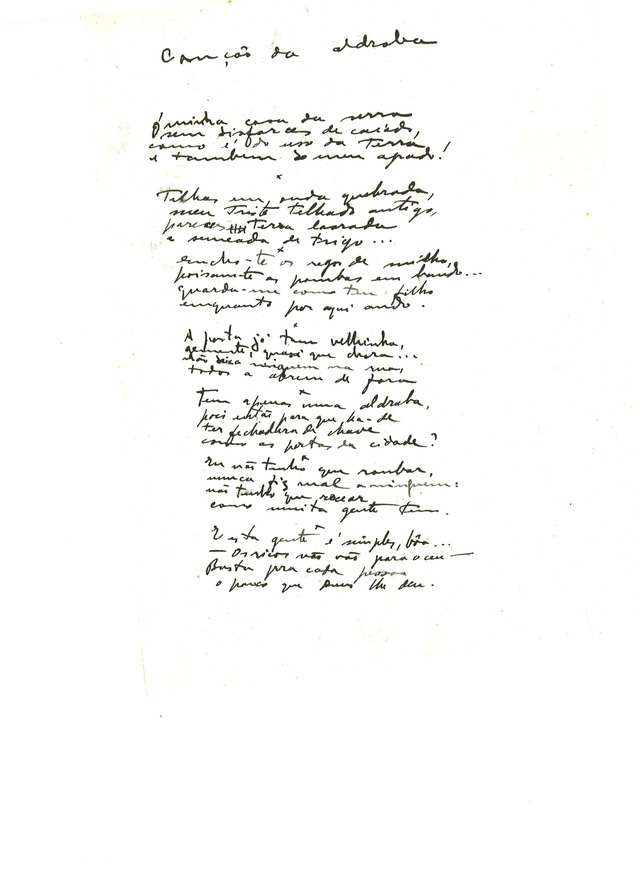 Canção da aldraba
Ó minha casa da serra
sem disfarces de caiado,
como é do uso da terra
e tambem do meu agrado!
x
Telhas em onda quebrada,
meu triste telhado antigo,
pareces terra lavrada
e semeada de trigo...
x
enche-te os regos de milho,
poisam-te as pombas em bando...
guarda-me como teu filho
enquanto por aqui ando.
x
A porta já tem velhinha,
gemente, quasi que chora...
não deixa ninguem na rua,
todos a abrem de fora
x
Tem apenas uma aldraba,
pois então para que ha-de
ter fechadura de chave
como as portas da cidade?
x
Eu não tenho que roubar,
nunca fiz mal a ninguem:
não tenho que recear
como muita gente tem.
x
E esta gente é simples, bôa...
— Os ricos não vão para o ceu —
Basta pra cada pessoa
o pouco que Deus lhe deu.